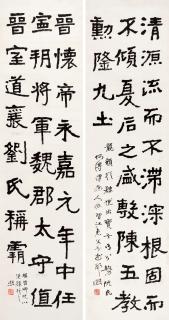 清源流而不滯深根固而
不傾夏后之盛敷陳五教
勳隆九土
晉懷帝永嘉元年中任
宣朔將軍魏郡太守值
晉室道襄劉氏稱霸